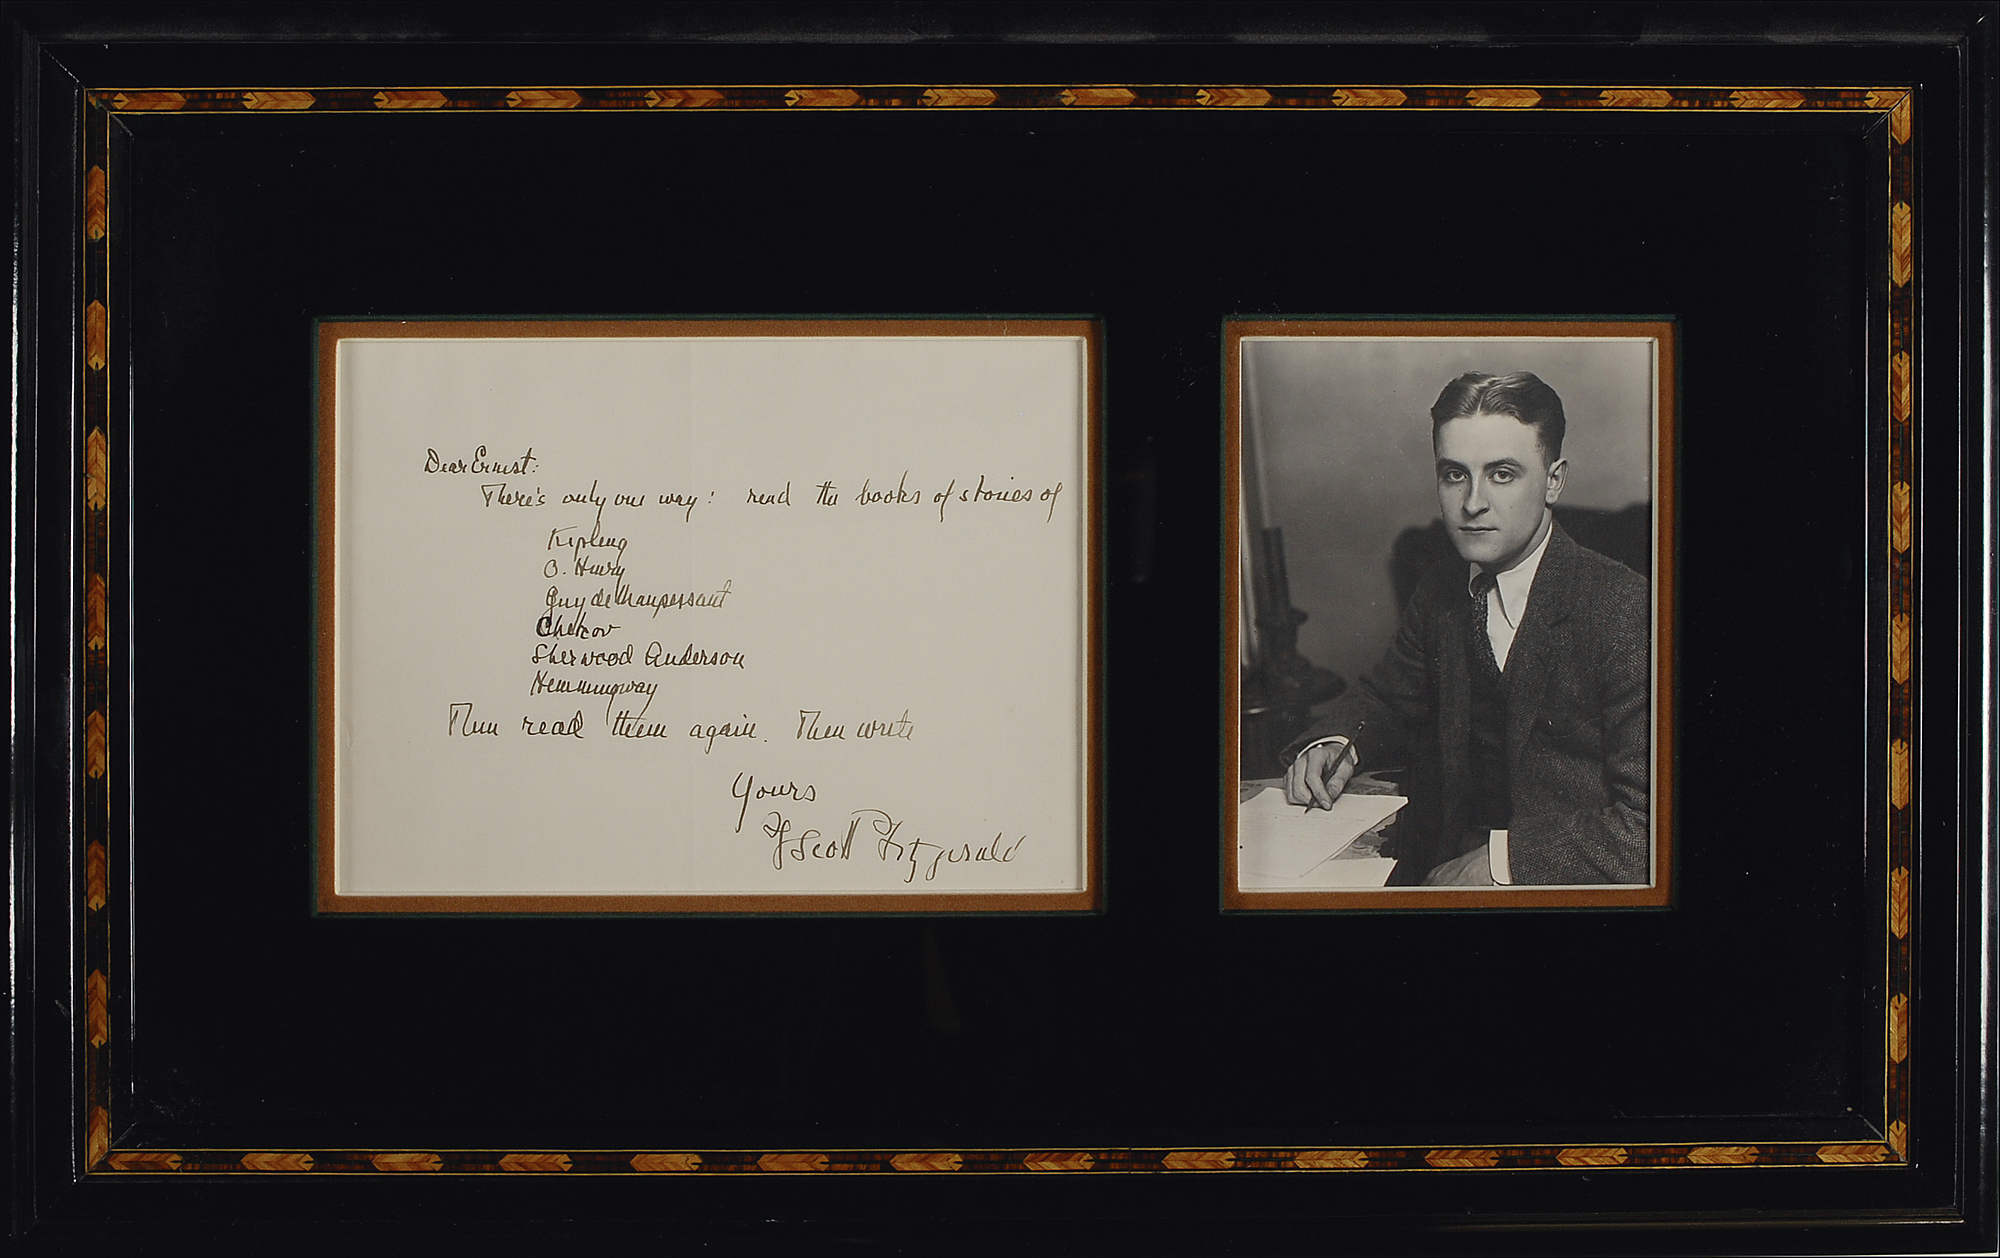 Dear Ernest:
There's only one way: read the books of stories of
Kipling
O. Henry
Guy de Maupessant
Chekov
Sherwood Anderson
Hemmingway
Then read them again. Then write
Yours
F Scott Fitzgerald